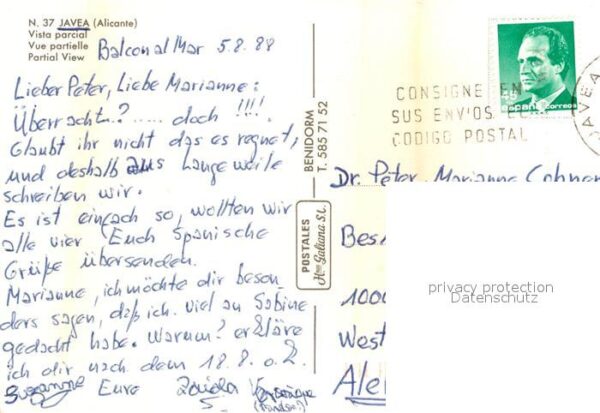 N. 37 JAVEA (Alicante)
Vista parcial
Vue partielle
Partial View
Balcon al Mar 5.8.88
Lieber Peter, Liebe Marianne:
Überracht..? ..... doch !!!!.
Glaubt ihr nicht das es regnet,
und deshalb aus Langeweile
schreiben wir.
Es ist einfach so, wollten wir
alle vier Euch Spanische
Grüße übersenden.
Marianne, ich möchte dir beson-
ders sagen, daß ich viel an Sabine
gedacht habe. Warum? erkläre
ich dir nach dem 18.8. o.k.
Suzanne Eure
BENIDORM
T. 585 71 52
POSTALES
Hnos Galiana S.L.
CONSIGNE EN
SUS ENVIOS EL
CODIGO POSTAL
JAVEA
45
España correos
Dr. Peter, Marianne
Bes
1000
West
Ale
privacy protection
Datenschutz